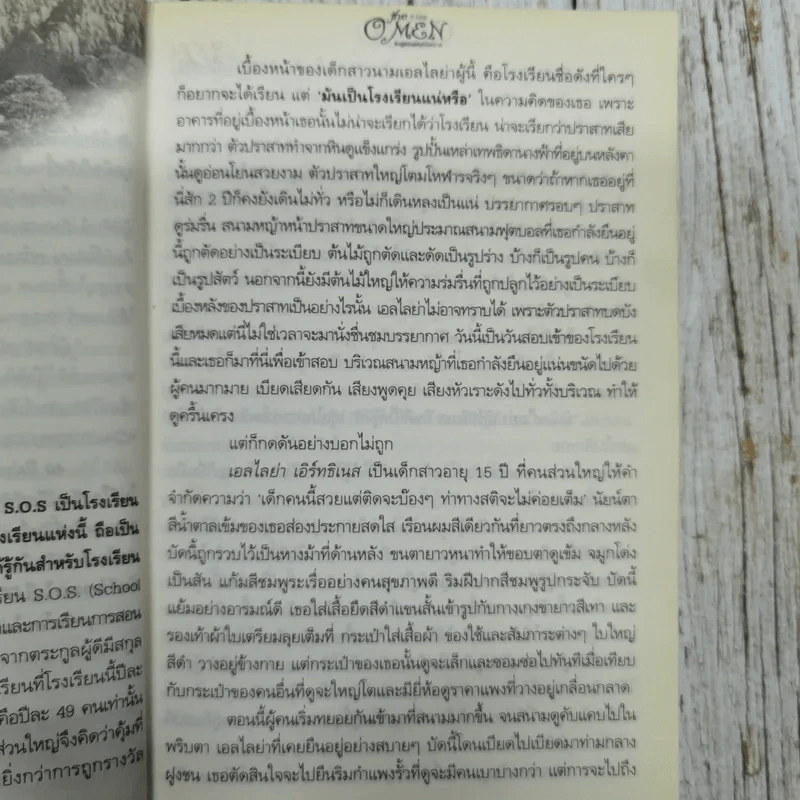 O'MEN
เบื้องหน้าของเด็กสาวนามเอลไลย่าผู้นี้ คือโรงเรียนชื่อดังที่ใครๆ
ก็อยากจะได้เรียน แต่ 'มันเป็นโรงเรียนแน่หรือ' ในความคิดของเธอ เพราะ
อาคารที่อยู่เบื้องหน้าเธอนั้นไม่น่าจะเรียกได้ว่าโรงเรียน น่าจะเรียกว่าปราสาทเสีย
มากกว่า ตัวปราสาททำจากหินดูแข็งแกร่ง รูปปั้นเหล่าเทพธิดานางฟ้าที่อยู่บนหลังคา
นั้นดูอ่อนโยนสวยงาม ตัวปราสาทใหญ่โตมโหฬารจริงๆ ขนาดว่าถ้าหากเธออยู่ที่
นี่สัก 2 ปีก็คงยังเดินไม่ทั่ว หรือไม่ก็เดินหลงเป็นแน่ บรรยากาศรอบๆ ปราสาท
ดูร่มรื่น สนามหญ้าหน้าปราสาทขนาดใหญ่ประมาณสนามฟุตบอลที่เธอกำลังยืนอยู่
นี้ถูกตัดอย่างเป็นระเบียบ ต้นไม้ถูกตัดและดัดเป็นรูปร่าง บ้างก็เป็นรูปคน บ้างก็
เป็นรูปสัตว์ นอกจากนี้ยังมีต้นไม้ใหญ่ให้ความร่มรื่นที่ถูกปลูกไว้อย่างเป็นระเบียบ
เบื้องหลังของปราสาทเป็นอย่างไรนั้น เอลไลย่าไม่อาจทราบได้ เพราะตัวปราสาทบดบัง
เสียหมดแต่นี่ไม่ใช่เวลาจะมานั่งชื่นชมบรรยากาศ วันนี้เป็นวันสอบเข้าของโรงเรียน
นี้และเธอก็มาที่นี่เพื่อเข้าสอบ บริเวณสนามหญ้าที่เธอกำลังยืนอยู่แน่นขนัดไปด้วย
ผู้คนมากมาย เบียดเสียดกัน เสียงพูดคุย เสียงหัวเราะดังไปทั่วทั้งบริเวณ ทำให้
ดูครื้นเครง
แต่ก็กดดันอย่างบอกไม่ถูก
เอลไลย่า เอิร์ทธิเนส เป็นเด็กสาวอายุ 15 ปี ที่คนส่วนใหญ่ให้คำ
จำกัดความว่า 'เด็กคนนี้สวยแต่ติดจะบ๊องๆ ท่าทางสติจะไม่ค่อยเต็ม' นัยน์ตา
สีน้ำตาลเข้มของเธอส่องประกายสดใส เรือนผมสีเดียวกันที่ยาวตรงถึงกลางหลัง
บัดนี้ถูกรวบไว้เป็นหางม้าที่ด้านหลัง ขนตายาวหนาทำให้ขอบตาดูเข้ม จมูกโด่ง
เป็นสัน แก้มสีชมพูระเรื่ออย่างคนสุขภาพดี ริมฝีปากสีชมพูรูปกระจับ บัดนี้
แย้มอย่างอารมณ์ดี เธอใส่เสื้อยืดสีดำแขนสั้นเข้ารูปกับกางเกงขายาวสีเทา และ
รองเท้าผ้าใบเตรียมลุยเต็มที่ กระเป๋าใส่เสื้อผ้า ของใช้และสัมภาระต่างๆ ใบใหญ่
สีดำ วางอยู่ข้างกาย แต่กระเป๋าของเธอนั้นดูจะเล็กและซอมซ่อไปทันทีเมื่อเทียบ
กับกระเป๋าของคนอื่นที่ดูจะใหญ่โตและมียี่ห้อดูราคาแพงที่วางอยู่เกลื่อนกลาด
ตอนนี้ผู้คนเริ่มทยอยกันเข้ามาที่สนามมากขึ้น จนสนามดูคับแคบไปใน
พริบตา เอลไลย่าที่เคยยืนอยู่อย่างสบายๆ บัดนี้โดนเบียดไปเบียดมาท่ามกลาง
ฝูงชน เธอตัดสินใจจะไปยืนริมกำแพงรั้วที่ดูจะมีคนเบาบางกว่า แต่การจะไปถึง
S.O.S เป็นโรงเรียน
งเรียนแห่งนี้ ถือเป็น
รู้กันสำหรับโรงเรียน
รียน S.O.S. (School
าและการเรียนการสอน
จากตระกูลผู้ดีมีสกุล
เรียนที่โรงเรียนนี้ปีละ
คือปีละ 49 คนเท่านั้น
ส่วนใหญ่จึงคิดว่าคุ้มที่
ยิ่งกว่าการถูกรางวัล